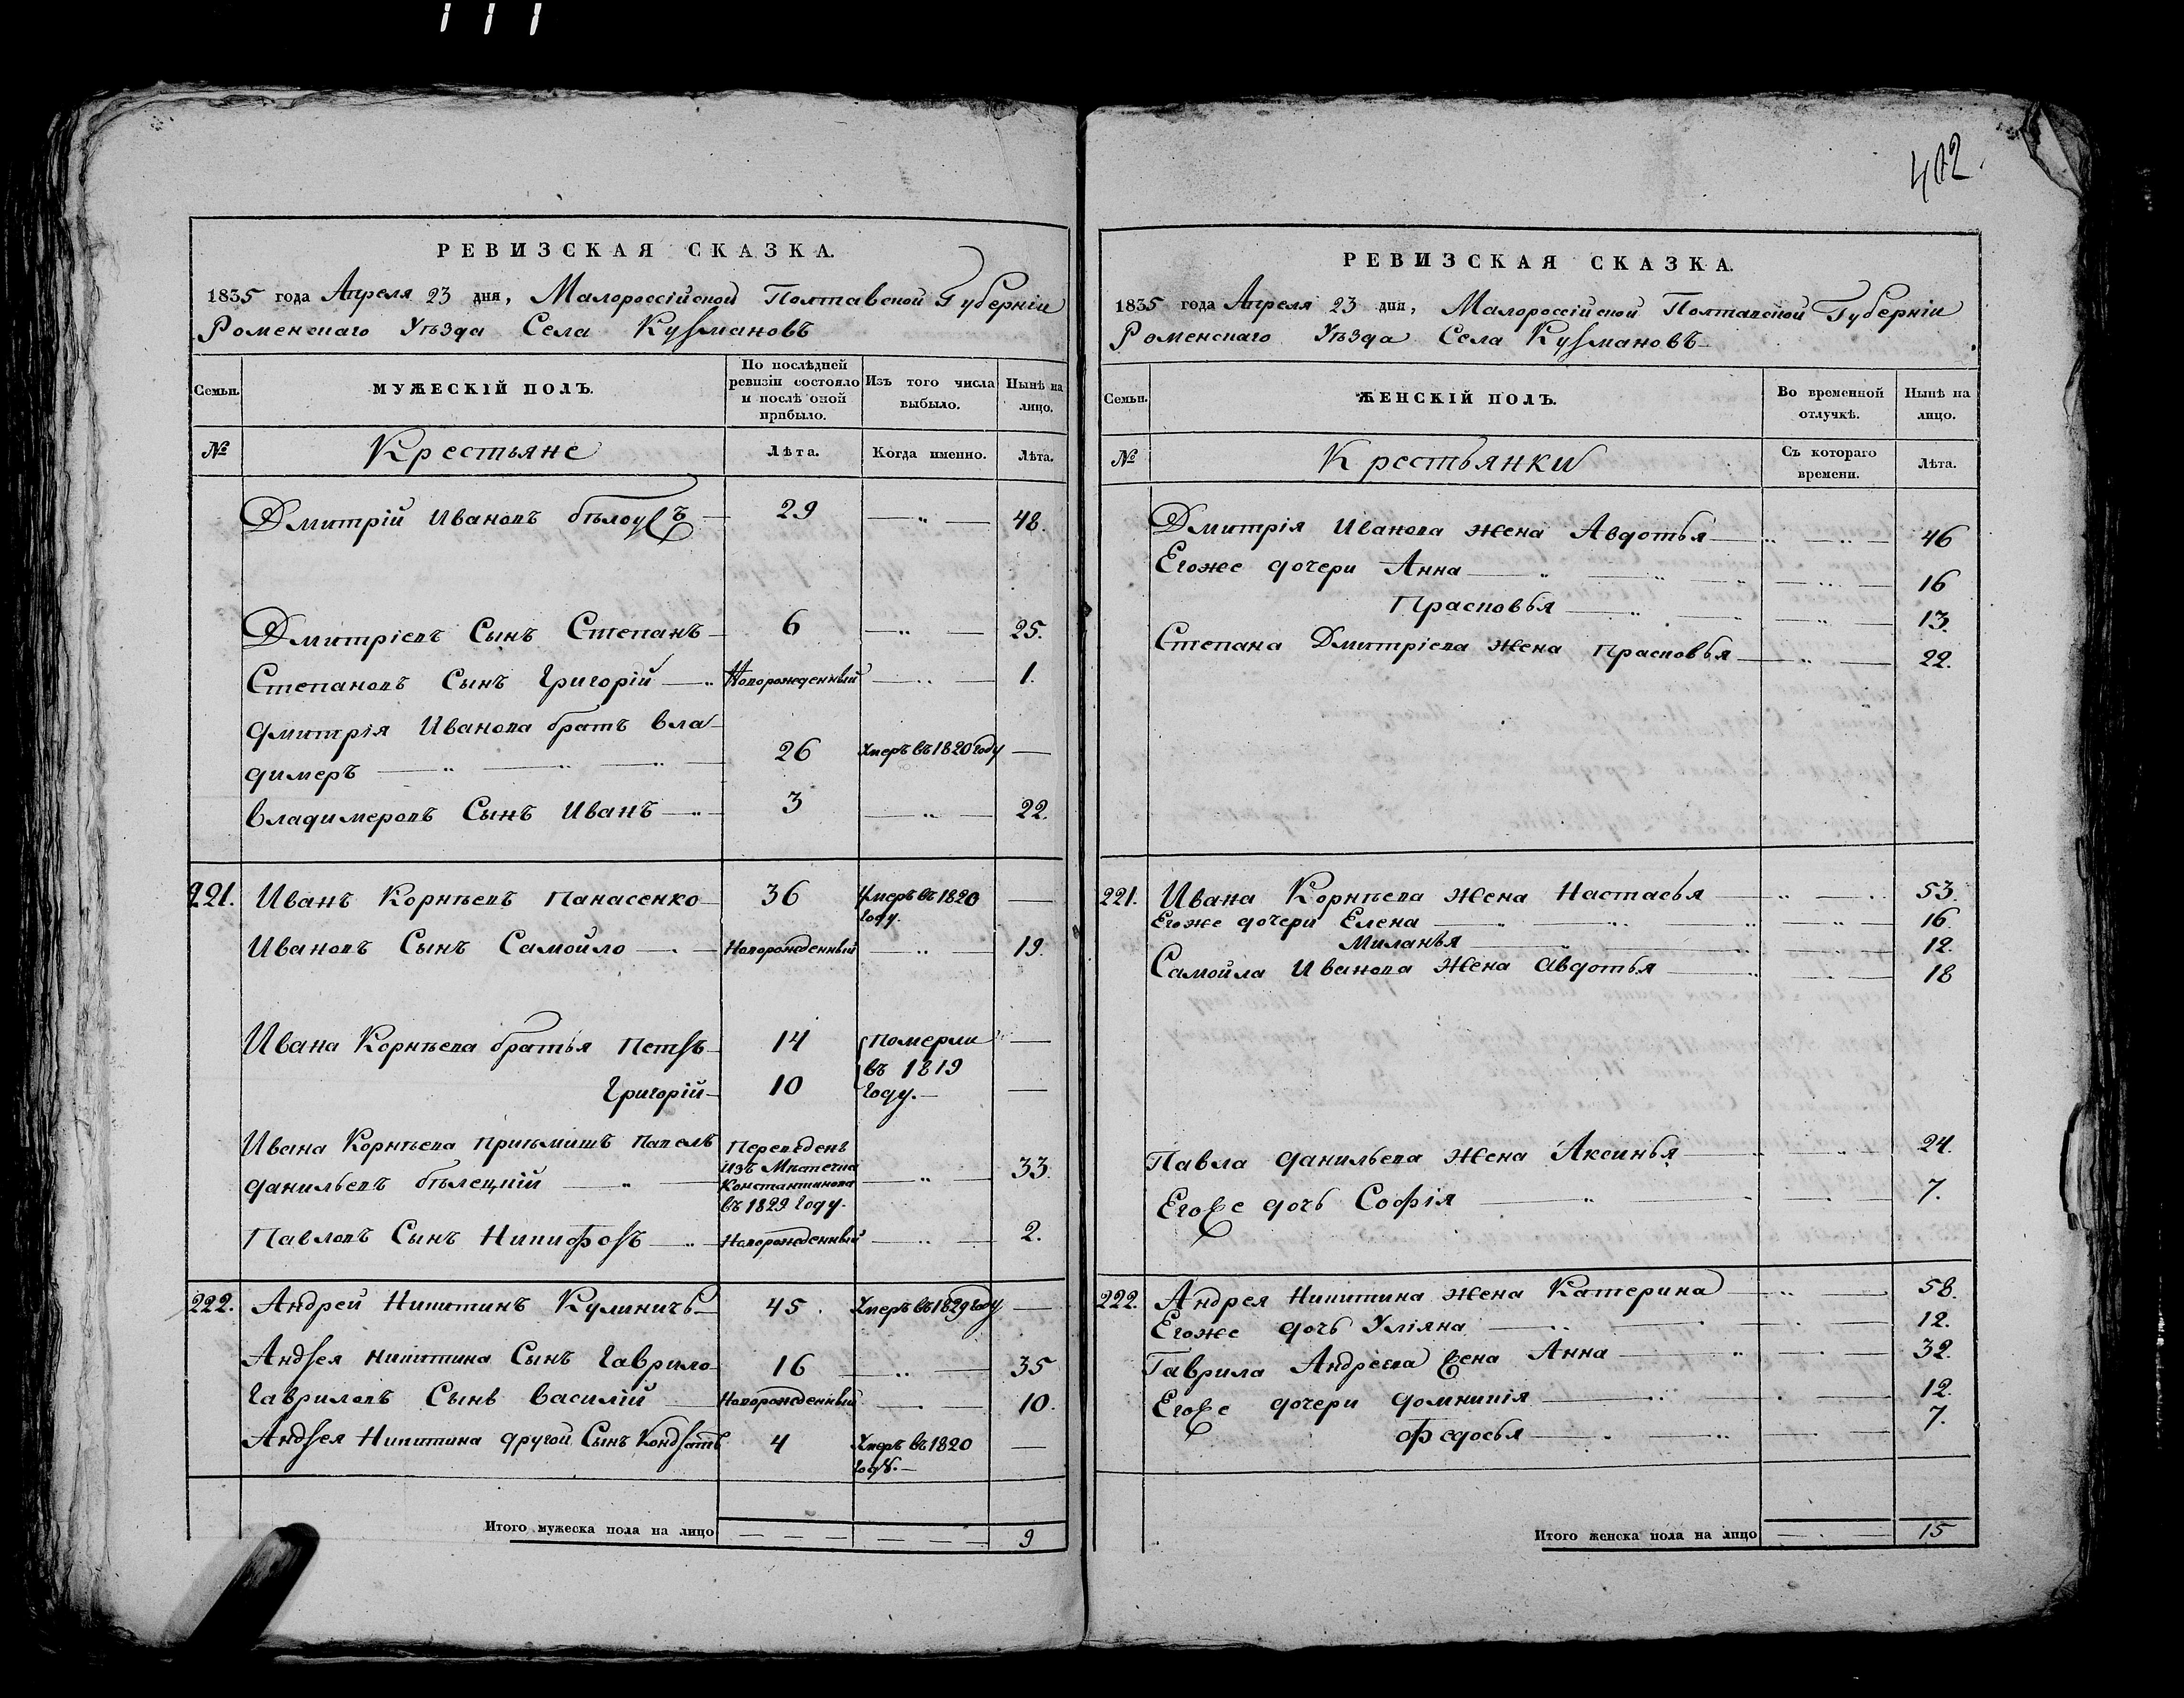 402.
РЕВИЗСКАЯ СКАЗКА.
1835 года Апреля 23 дня, Малороссійской Полтавской Губерніи
Роменскаго Уѣзда Села Кузмановъ
Семьи.
МУЖЕСКІЙ ПОЛЪ.
По послѣдней ревизіи состояло и послѣ оной прибыло.
Изъ того числа выбыло.
Нынѣ на лицо.
№ Крестьяне Лѣта. Когда именно. Лѣта.
Дмитрій Ивановъ бѣлоусъ 29 — „ — 48.
Дмитріевъ Сынъ Степанъ 6 — „ — 25.
Степановъ Сынъ Григорій — „ Новорожденный — „ — 1.
Дмитрія Иванова братъ вла-
димеръ — „ — „ — „ — 26 Умеръ въ 1820 году —
владимеровъ Сынъ Иванъ — „ 3 — „ — 22.
221. Иванъ Корнѣевъ Панасенко 36 Умеръ въ 1820 —
году.
Ивановъ Сынъ Самойло — „ — Новорожденный — „ — 19.
Ивана Корнѣева братья Петръ 14 Померли —
въ 1819
Григорій 10 году. —
Ивана Корнѣева пріѣмишъ Павелъ Переведенъ
изъ Мѣстечка
данильевъ бѣлецкій — „ — Константинова — „ — 33.
въ 1829 году.
Павловъ Сынъ Никифоръ — „ — Новорожденный — „ — 2.
222. Андрей Никитинъ Кулиничъ 45. Умеръ въ 1829 году —
Андрея Никитина Сынъ Гаврило 16 — „ — 35
Гавриловъ Сынъ Василій — Новорожденный — „ — 10.
Андрея Никитина другой Сынъ Кондратъ 4 Умеръ въ 1820 —
году. —
Итого мужеска пола на лицо — — — — — — 9
РЕВИЗСКАЯ СКАЗКА.
1835 года Апреля 23 дня, Малороссійской Полтавской Губерніи
Роменскаго Уѣзда Села Кузмановъ
Семьи.
ЖЕНСКІЙ ПОЛЪ.
Во временной отлучкѣ.
Нынѣ на лицо.
№ Крестьянки Съ котораго времени. Лѣта.
Дмитрія Иванова жена Авдотья — „ — „ — 46
Егоже дочери Анна — „ — „ — „ — „ — 16
Прасковья — „ — „ — 13.
Степана Дмитріева жена Прасковья — „ — 22.
221. Ивана Корнѣева жена Настасья — „ — „ 53.
Егоже дочери Елена — „ — „ — „ — „ — 16.
Миланья — „ — „ — 12.
Самойла Иванова жена Авдотья — „ — 18
Павла данильева жена Аксинья — „ — „ 24.
Егоже дочь Софія — „ — „ — 7.
222. Андрея Никитина жена Катерина — „ — 58.
Егоже дочь Уліяна — „ — „ — 12.
Гаврила Андреева жена Анна — „ — „ — 32.
Егоже дочери домникія — „ — „ — 12.
Федосья — „ — „ — „ — 7.
Итого женска пола на лицо — „ — 15